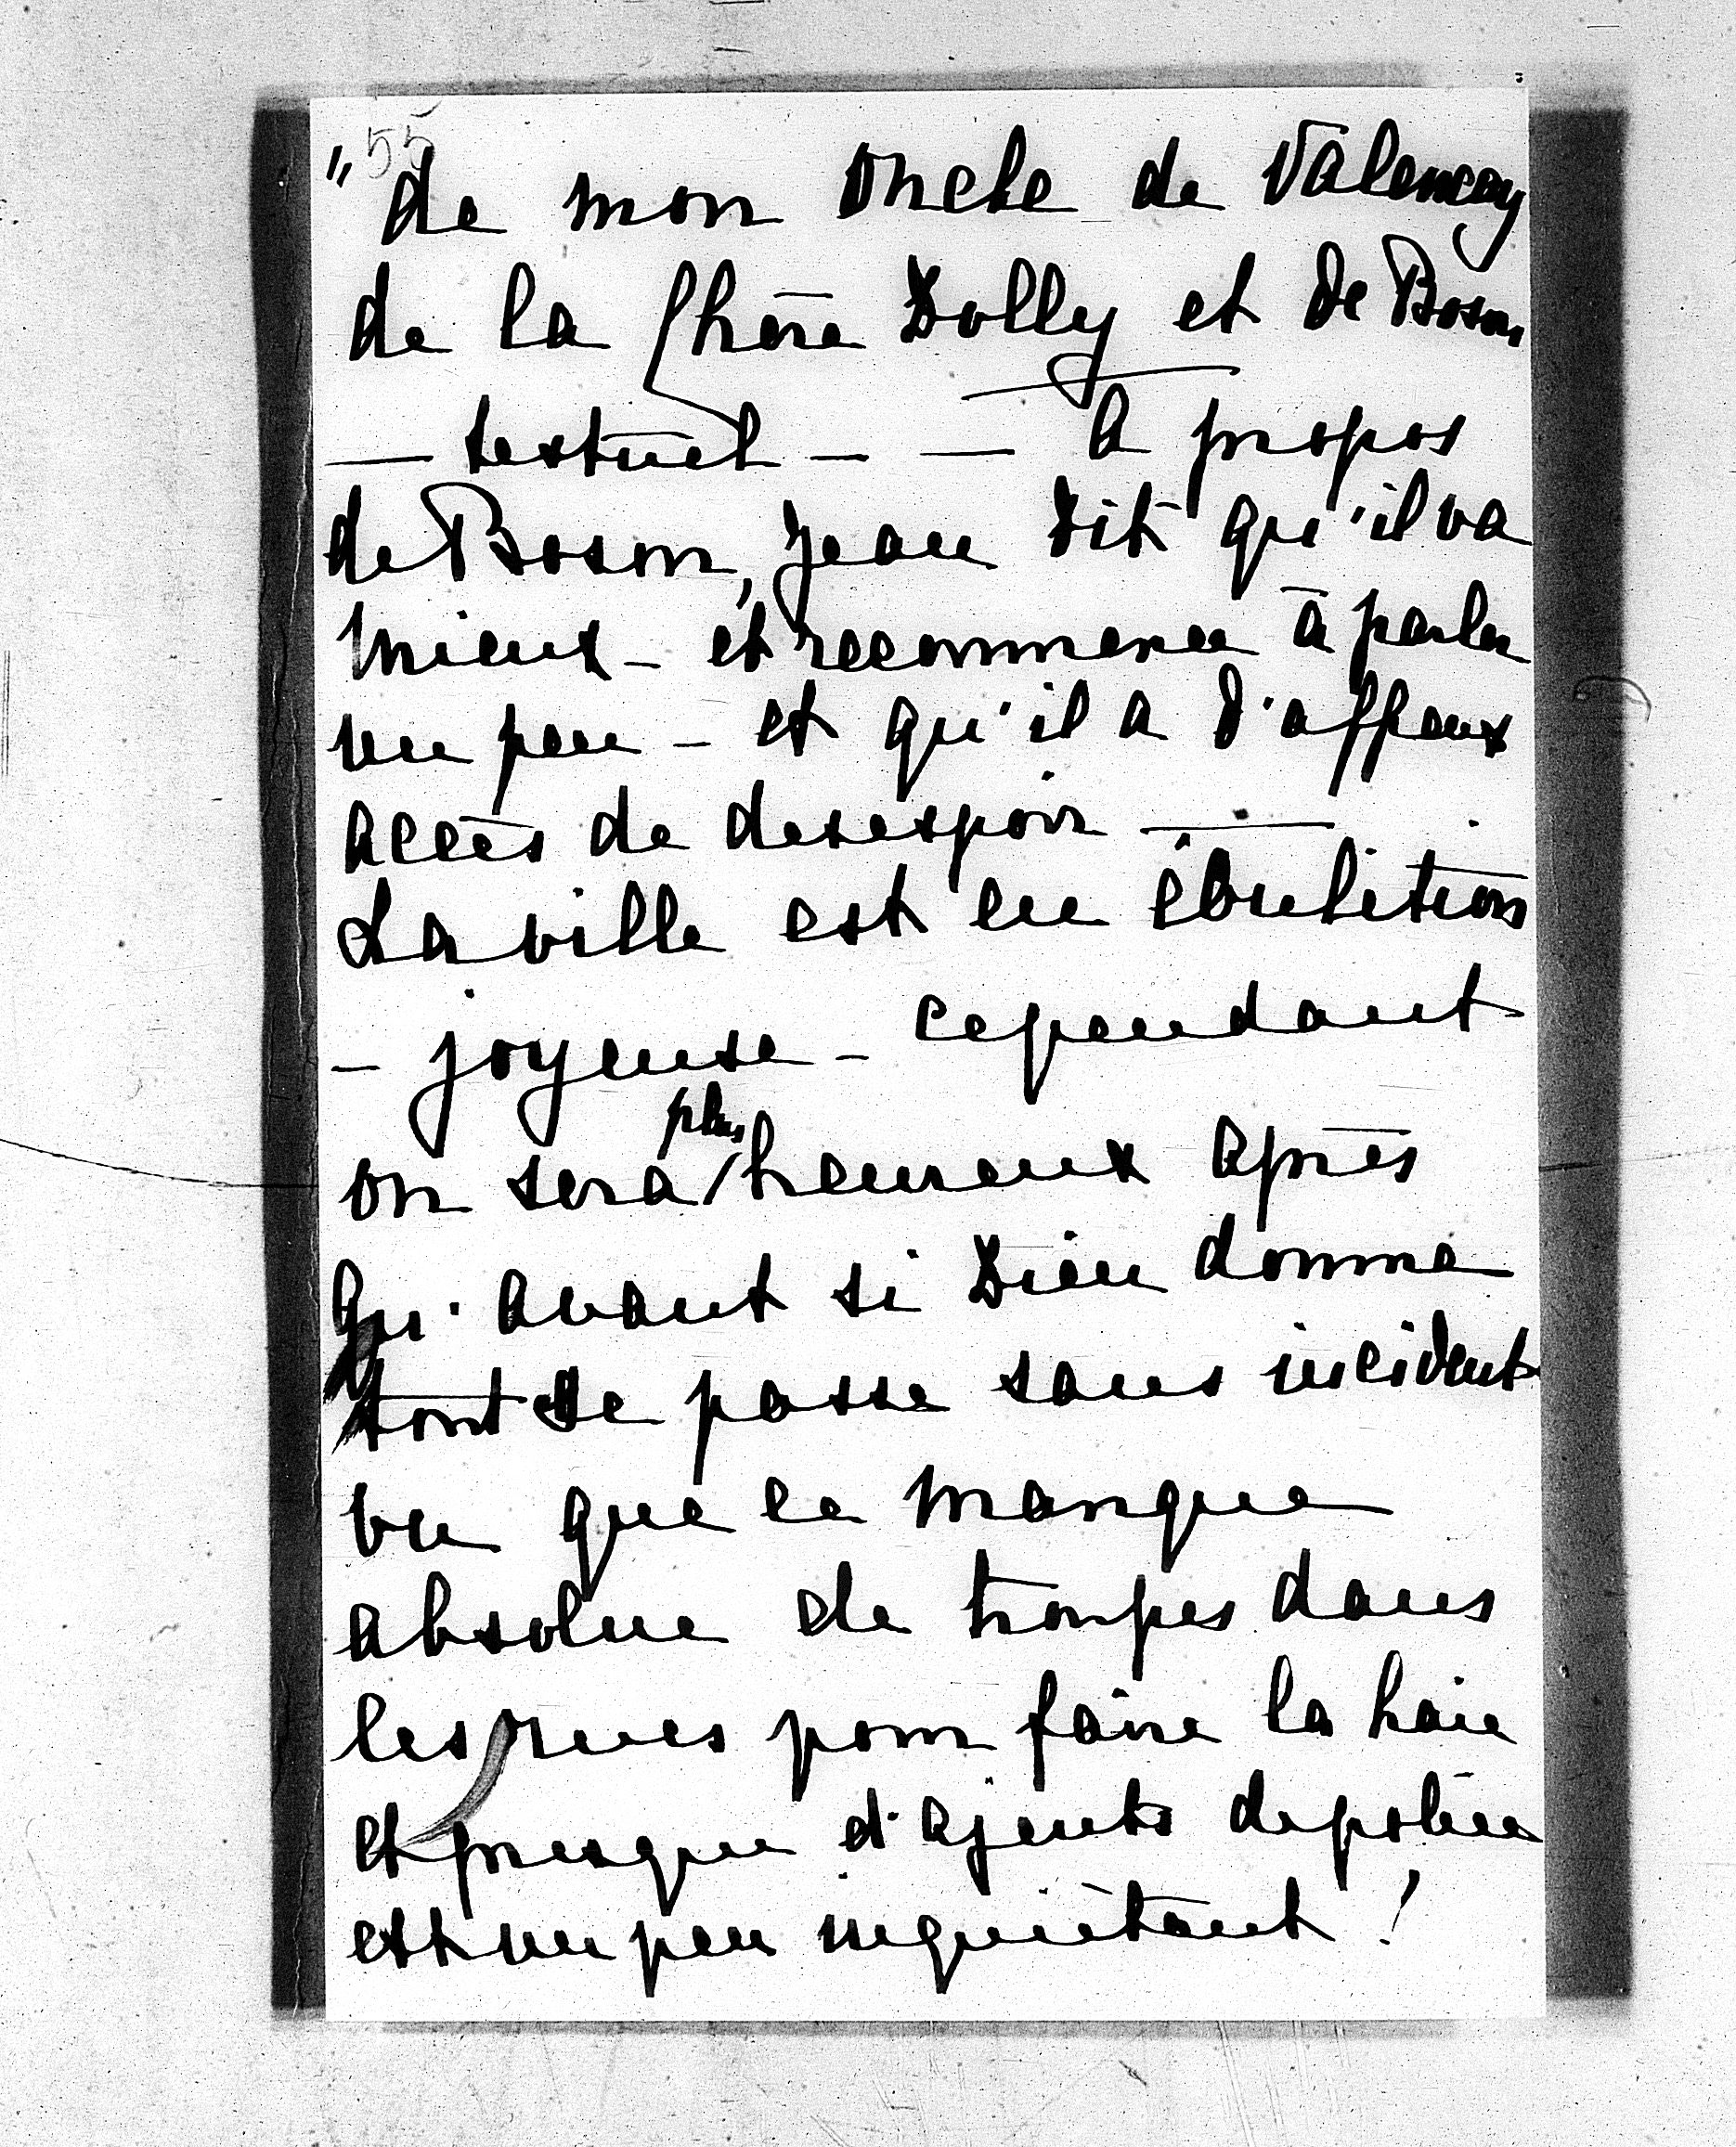 55
" de mon oncle de Valencay
de la chère Dolly et de Boson
— textuel — — à propos
de Boson, Jean dit qu'il va
mieux – et recommence à parler
un peu – et qu'il a d'affreux
accès de desespoir —
La ville est en ébulition
– joyeuse – cependant
on sera plus heureux après
qu'avant si Dieu donne
tout se passe sans incident
vu que ce manque
absolue de troupes dans
les rues pour faire la haie
et presque d'agents de police
est un peu inquiètant !